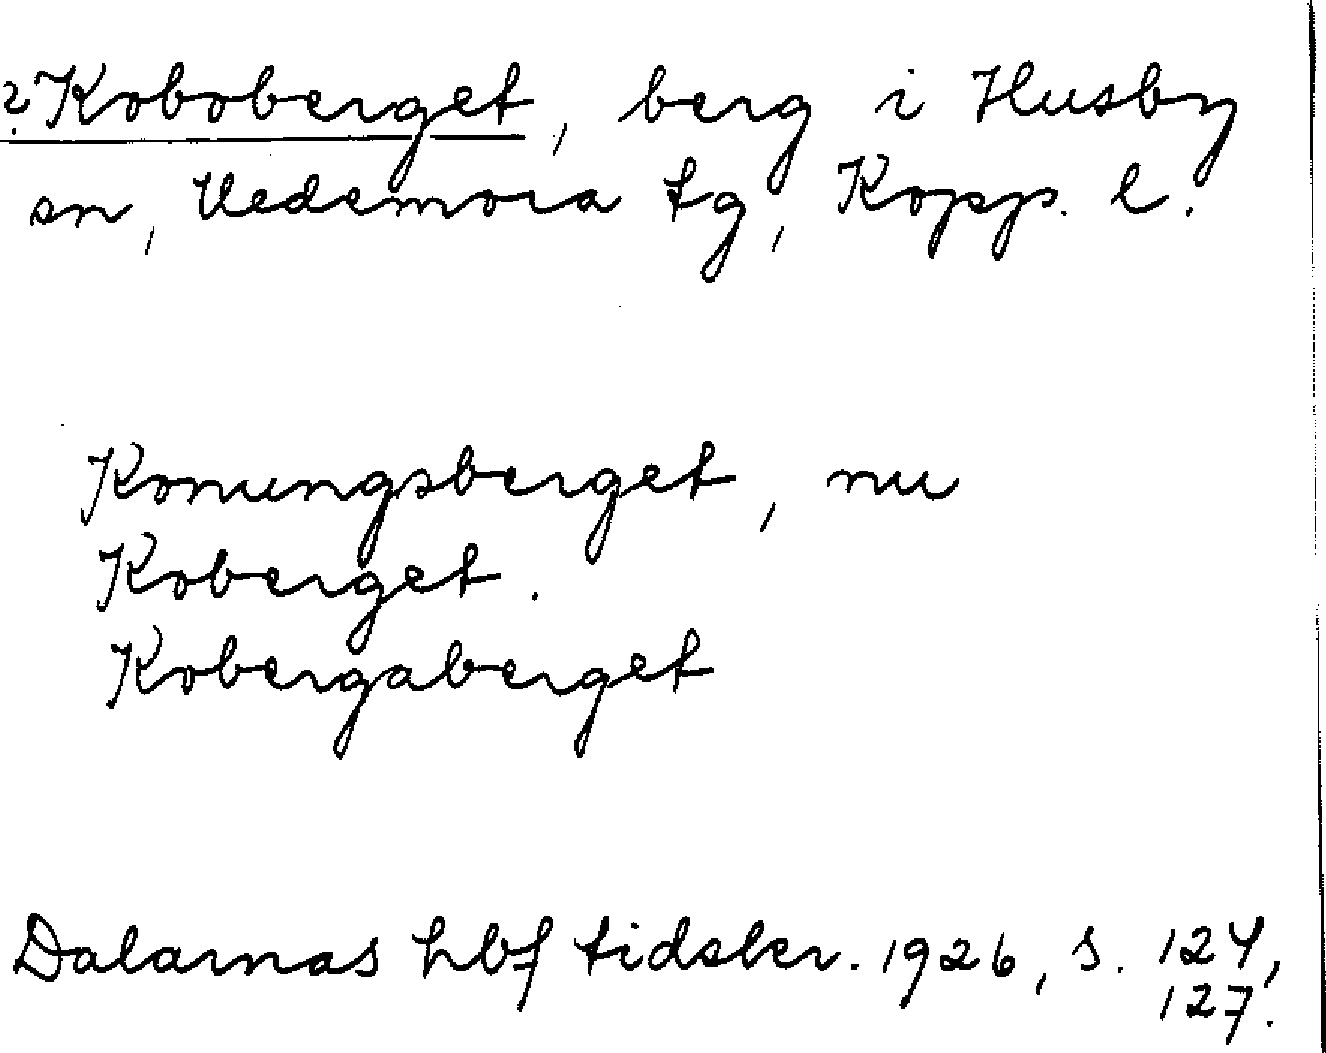 ?Koboberget, berg i Husby
sn, Hedemora tg, Kopp. l.
Konungsberget, nu
Koberget.
Kobergaberget
Dalarnas hbf tidskr. 1926, s. 124,
127.